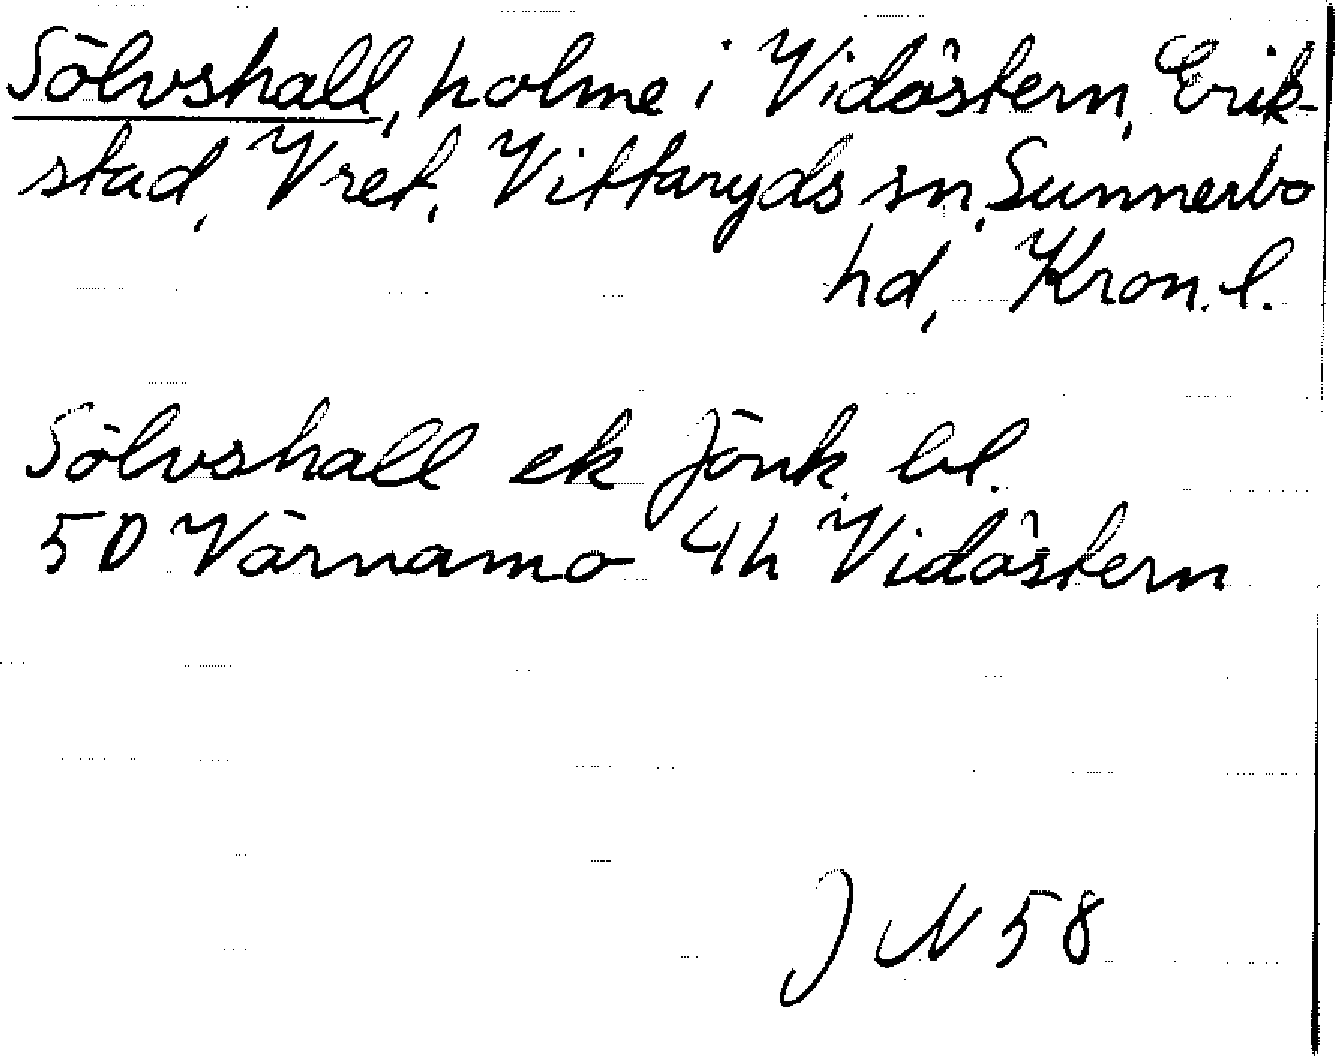 Sölvshall, holme i Vidöstern, Erik-
stad, Vret, Vittaryds sn, Sunnerbo
hd, Kron. l.
Sölvshall ek Jönk. bl.
5D Värnamo 4h Vidöstern
J N 58